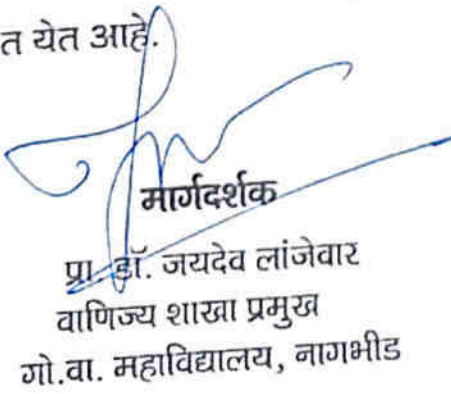 त येत आहे.
मार्गदर्शक
प्रा. डॉ. जयदेव लांजेवार
वाणिज्य शाखा प्रमुख
गो.वा. महाविद्यालय, नागभीड